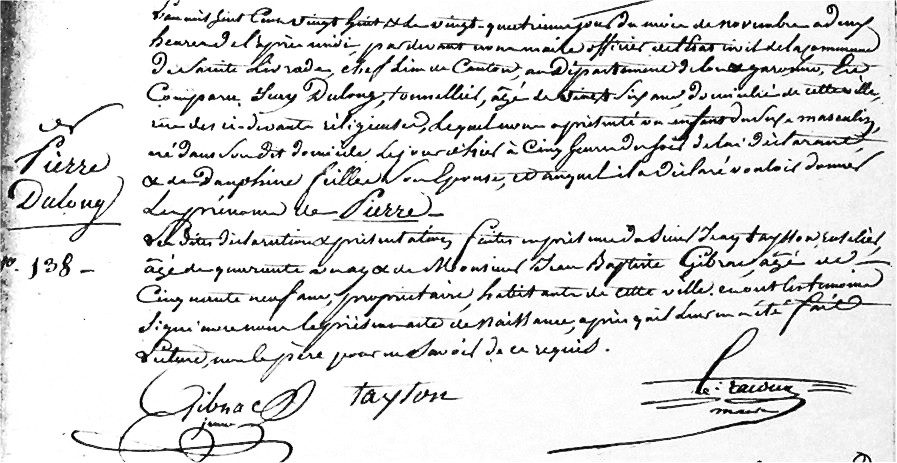 L'an mil huit Cent vingt huit & le vingt-quatrieme jour du mois de novembre a deux
heures de l'après midi, par devant nous maire officier de l'état civil de la Commune
de Sainte Livrade, chef lieu de Canton, au Département de lot & garonne, Est
Comparu Jean Dulong, tonnellier, âgé de vingt Six ans, domicilié de cette ville,
rue des ci-devants religieuses, Lequel nous a présenté un enfant du Sexe masculin,
né dans Son dit domicile Le jour d'hier à Cinq heures du Soir de lui déclarant
& de Dauphine fillee Son Epouse, et auquel il a déclaré vouloir donner
Le prénom de Pierre -
Les dites déclaration & présentation faites en présence du Sieur Jean tayton,
âgé de quarante ans & de Monsieur Jean Baptiste Gibnac, âgé de
Cinquante neuf ans, propriétaire, habitants de cette ville. et ont les temoins
Signé avec nous le présent acte de Naissance, après qu'il leur en a été fait
Lecture, non le père pour ne Savoir de ce requis.
Pierre
Dulong
n°. 138 -
Gibnac
jeune
tayton
maire